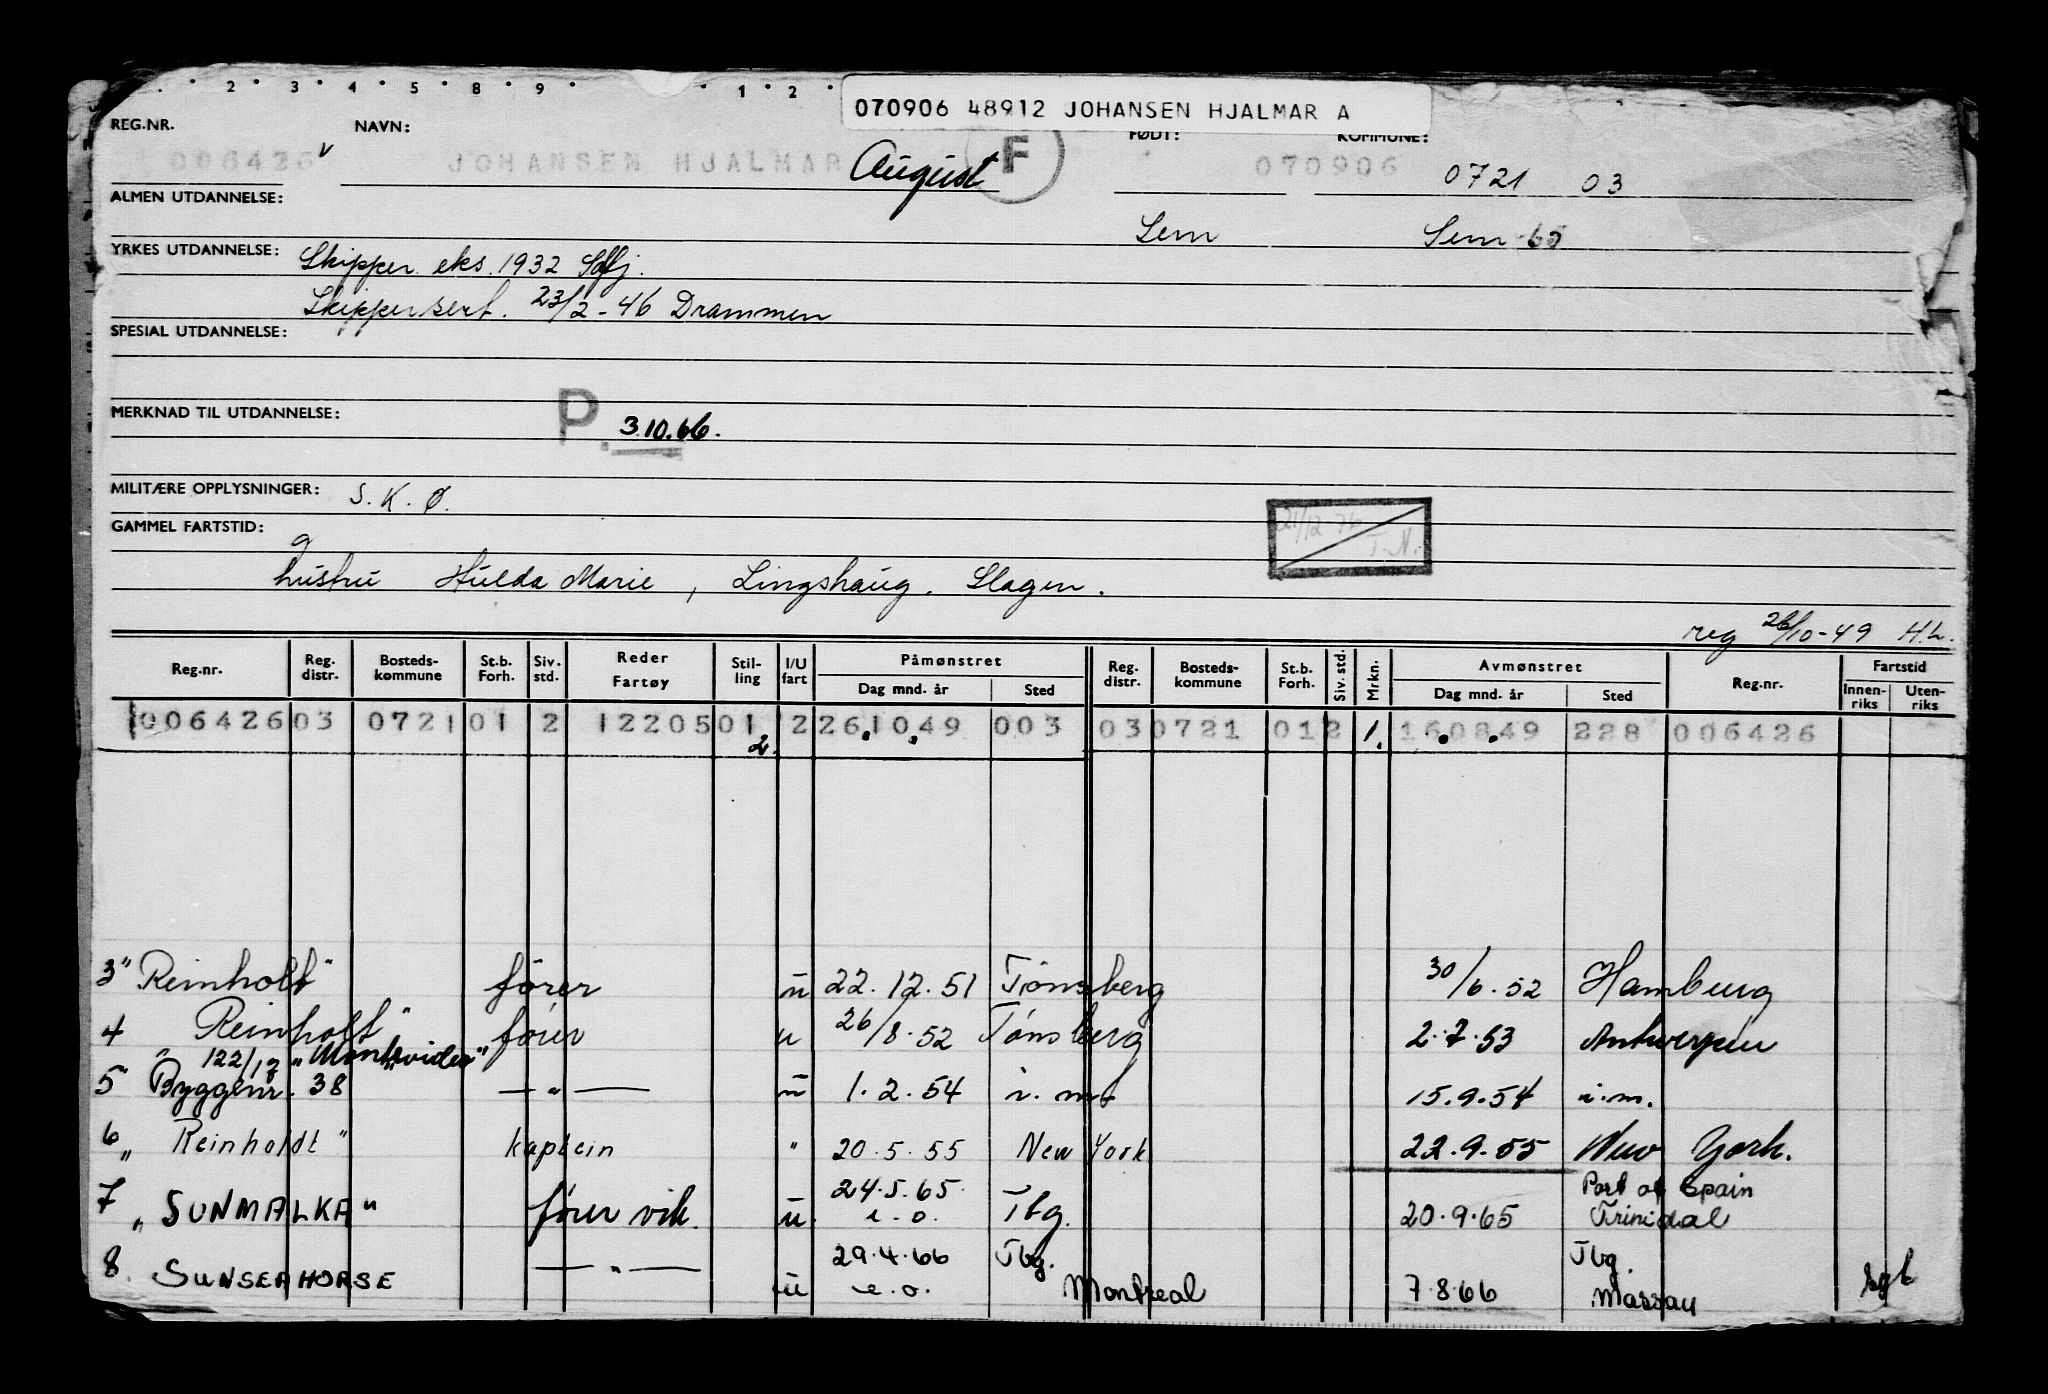 2 3 4 5 8 9 1 2
070906 48912 JOHANSEN HJALMAR A
REG.NR. NAVN: FØDT: KOMMUNE:
006426 v JOHANSEN HJALMAR August F 070906 0721 03
ALMEN UTDANNELSE:
Sem Sem 65
YRKES UTDANNELSE: Skipper eks. 1932
Skippersert. 23/2-46 Drammen
SPESIAL UTDANNELSE:
MERKNAD TIL UTDANNELSE:
P. 3.10.66.
MILITÆRE OPPLYSNINGER: S. K. Ø.
GAMMEL FARTSTID:
21/12-76 T.N.
g
hustru Hulda Marie, Lingshaug. Slagen.
reg 26/10-49 H.L.
Reg.nr. Reg. distr. Bosteds-kommune St.b. Forh. Siv. std. Reder Fartøy Stil-ling I/U fart Påmønstret Dag mnd. år Sted Reg. distr. Bosteds-kommune St.b. Forh. Siv. std. Mrkn. Avmønstret Dag mnd. år Sted Reg.nr. Fartstid Innen-riks Uten-riks
006426 03 0721 01 2 12205 01 2 26.10.49 003 03 0721 01 2 1. 16.08.49 228 006426
2.
3 "Reinholt" fører u 22.12.51 Tønsberg 30/6.52 Hamburg
4 Reinholt" fører u 26/8.52 Tønsberg 2.7.53 Antwerpen
122/12 "Montevideo"
5 Byggenr. 38 — " — u 1.2.54 i.m. 15.9.54 i.m.
6 " Reinholdt " kaptein " 20.5.55 New York 22.9.55 New York.
7 "SUNMALKA" fører vik. u. 24.5.65. e.o. Tbg. 20.9.65 Port of Spain Trinidal
8. SUNSEAHORSE — " — u 29.4.66 e.o. Tbg. Montreal 7.8.66 Tbg. Massau